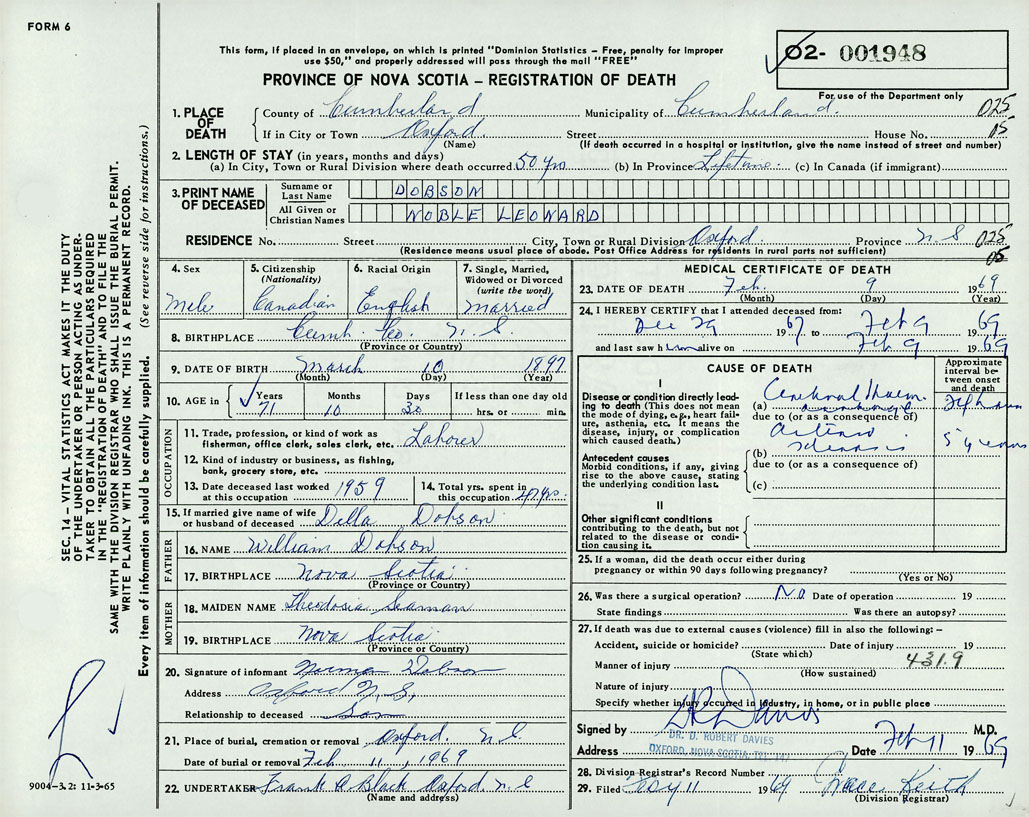 FORM 6
This form, if placed in an envelope, on which is printed "Dominion Statistics – Free, penalty for improper
use $50," and properly addressed will pass through the mail "FREE"
PROVINCE OF NOVA SCOTIA – REGISTRATION OF DEATH
02- 001948
For use of the Department only
1. PLACE OF DEATH County of Cumberland Municipality of Cumberland 025
If in City or Town Oxford Street House No. 05
(Name) (If death occurred in a hospital or institution, give the name instead of street and number)
2. LENGTH OF STAY (in years, months and days)
(a) In City, Town or Rural Division where death occurred 50 yrs (b) In Province Lifetime (c) In Canada (if immigrant)
3. PRINT NAME OF DECEASED Surname or Last Name DOBSON
All Given or Christian Names NOBLE LEONARD
RESIDENCE No. Street City, Town or Rural Division Oxford Province N.S 025
(Residence means usual place of abode. Post Office Address for residents in rural parts not sufficient) 05
4. Sex Male
5. Citizenship (Nationality) Canadian
6. Racial Origin English
7. Single, Married, Widowed or Divorced (write the word) Married
8. BIRTHPLACE Cumb. Co. N.S.
(Province or Country)
9. DATE OF BIRTH March 10 1897
(Month) (Day) (Year)
10. AGE in Years 71 Months 10 Days 30 If less than one day old hrs. or min.
OCCUPATION
11. Trade, profession, or kind of work as fisherman, office clerk, sales clerk, etc. Laborer
12. Kind of industry or business, as fishing, bank, grocery store, etc.
13. Date deceased last worked at this occupation 1959
14. Total yrs. spent in this occupation 40 yrs.
15. If married give name of wife or husband of deceased Della Dobson
FATHER
16. NAME William Dobson
17. BIRTHPLACE Nova Scotia
(Province or Country)
MOTHER
18. MAIDEN NAME Theodosia Seaman
19. BIRTHPLACE Nova Scotia
(Province or Country)
20. Signature of informant Norman Dobson
Address Oxford N.S.
Relationship to deceased Son
21. Place of burial, cremation or removal Oxford. N.S.
Date of burial or removal Feb 11, 1969
22. UNDERTAKER Frank A Black Oxford N.S
(Name and address)
MEDICAL CERTIFICATE OF DEATH
23. DATE OF DEATH Feb. 9 1969
(Month) (Day) (Year)
24. I HEREBY CERTIFY that I attended deceased from:
Dec 29 1967 to Feb 9 1969
and last saw him alive on Feb 9 1969
CAUSE OF DEATH
Approximate interval between onset and death
I
Disease or condition directly leading to death (This does not mean the mode of dying, e.g., heart failure, asthenia, etc. It means the disease, injury, or complication which caused death.)
(a) Cerebral
due to (or as a consequence of)
Antecedent causes
Morbid conditions, if any, giving rise to the above cause, stating the underlying condition last.
(b) Arterio sclerosis 5 years
due to (or as a consequence of)
(c)
II
Other significant conditions contributing to the death, but not related to the disease or condition causing it.
25. If a woman, did the death occur either during pregnancy or within 90 days following pregnancy?
(Yes or No)
26. Was there a surgical operation? No Date of operation 19
State findings Was there an autopsy?
27. If death was due to external causes (violence) fill in also the following: –
Accident, suicide or homicide? Date of injury 19
(State which) 431.9
Manner of injury
(How sustained)
Nature of injury
Specify whether injury occurred in industry, in home, or in public place
Signed by D R Davies M.D.
DR. D. ROBERT DAVIES
Address OXFORD, NOVA SCOTIA, TEL. 147 Date Feb 11 1969
28. Division Registrar's Record Number
29. Filed Feby 11 1969 Grace Keith
(Division Registrar)
SEC. 14 – VITAL STATISTICS ACT MAKES IT THE DUTY
OF THE UNDERTAKER OR PERSON ACTING AS UNDER-
TAKER TO OBTAIN ALL THE PARTICULARS REQUIRED
IN THE "REGISTRATION OF DEATH" AND TO FILE THE
SAME WITH THE DIVISION REGISTRAR WHO SHALL ISSUE THE BURIAL PERMIT.
WRITE PLAINLY WITH UNFADING INK. THIS IS A PERMANENT RECORD.
Every item of information should be carefully supplied. (See reverse side for instructions.)
9004-3.2: 11-3-65